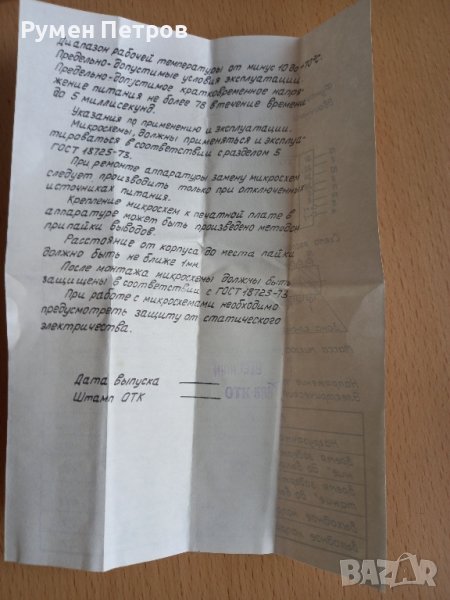 Румен Петров
Диапазон рабочей температуры от минус 10 до +70°С.
Предельно-допустимые условия эксплуатации
Предельно-допустимое кратковременное напря-
жение питания не более 7В в течение времени
до 5 миллисекунд.
Указания по применению и эксплуатации.
Микросхемы, должны применяться и эксплуа-
тироваться в соответствии с разделом 5
ГОСТ 18725-73.
При ремонте аппаратуры замену микросхем
следует производить только при отключенных
источниках питания.
Крепление микросхем к печатной плате в
аппаратуре может быть произведено методом
припайки выводов.
Расстояние от корпуса до места пайки
должно быть не ближе 1мм.
После монтажа микросхемы должны быть
защищены в соответствии с ГОСТ 18725-73.
При работе с микросхемами необходимо
предусмотреть защиту от статического
электричества.
Дата выпуска
Штамп ОТК
BAZAR